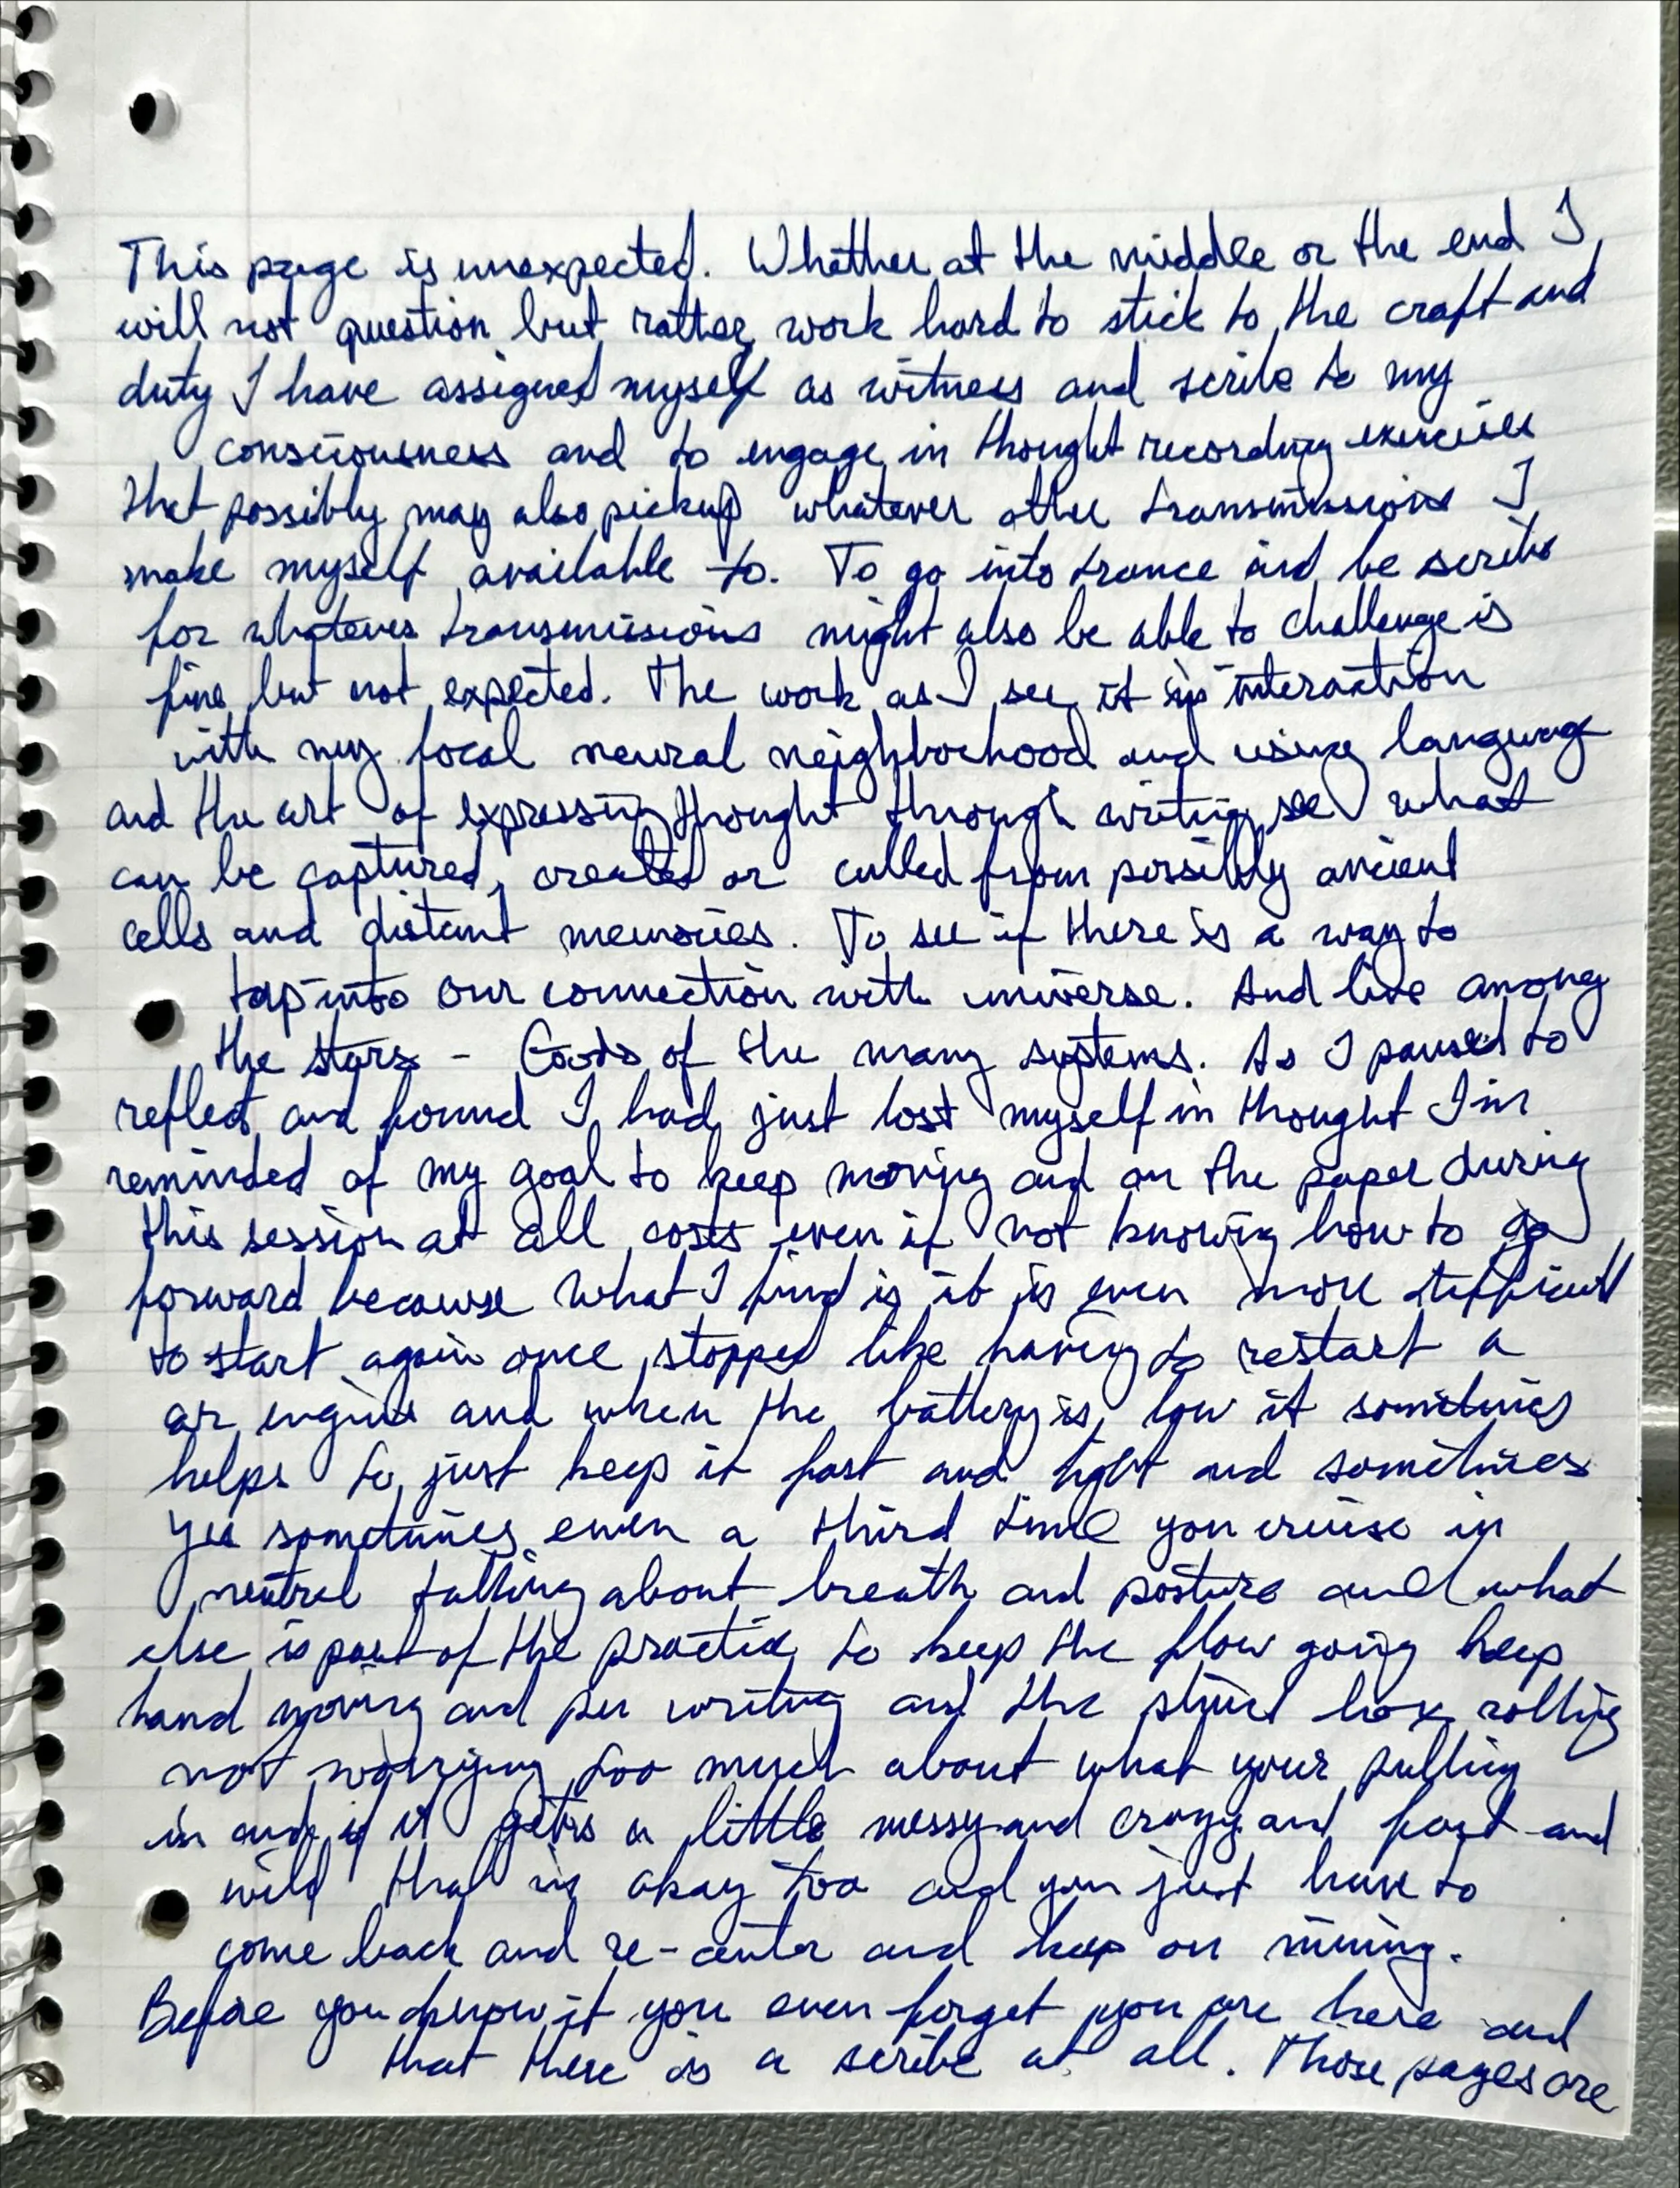 This page is unexpected. Whether at the middle or the end I
will not question but rather work hard to stick to the craft and
duty I have assigned myself as witness and scribe to my
consciousness and to engage in thought recording exercises
that possibly may also pickup whatever other transmissions I
make myself available to. To go into trance and be scribe
for whatever transmissions might also be able to challenge is
fine but not expected. The work as I see it is interaction
with my focal neural neighborhood and using language
and the art of expressing thought through writing see what
can be captured, created or culled from possibly ancient
cells and distant memories. To see if there is a way to
tap into our connection with universe. And live among
the stars - Gods of the many systems. As I paused to
reflect and found I had just lost myself in thought I'm
reminded of my goal to keep moving and on the paper during
this session at all costs even if not knowing how to go
forward because what I find is it is even more difficult
to start again once stopped like having to restart a
engine and when the battery is low it sometimes
helps to just keep it fast and light and sometimes
yes sometimes even a third time you cruise in
neutral talking about breath and posture and what
else is part of the practice to keep the flow going keep
hand moving and pen writing and the rolling
not worrying too much about what your pulling
in and if it gets a little messy and crazy and fast and
wild that is okay too and you just have to
come back and re-center and keep on mining.
Before you know it you even forget you are here and
that there is a scribe at all. Those pages are